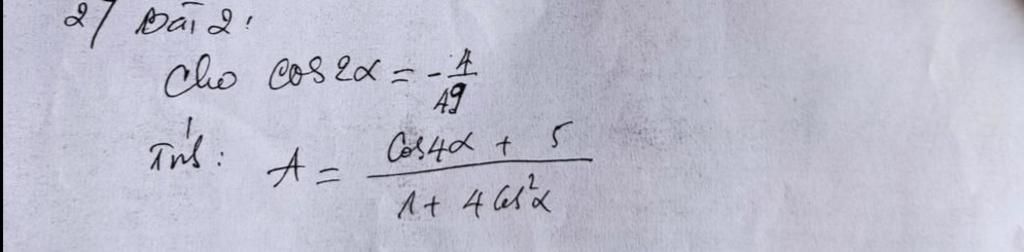 2/ Bài 2:
Cho cos2α = -4/19
Tính: A = (cos4α + 5)/(1 + 4cos²α)